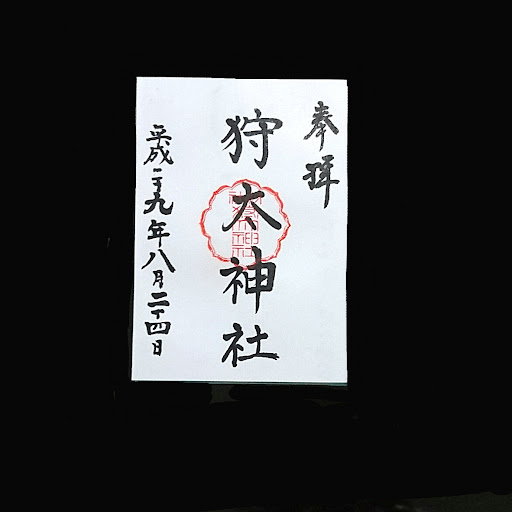 奉拝
狩太神社
平成二十九年八月二十四日